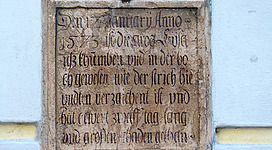 Den 1 January Anno
1573 ist die gros
khumben und in der ho
ch gewesen wie der strich hie
undten verzaichent ist und
hat gwert xi tag lang
und grossen schaden gethan